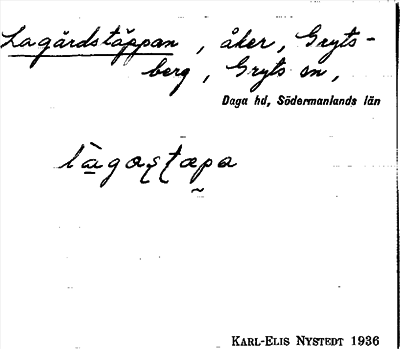 Lagårdstäppan, åker, Gryts-
berg, Gryts sn,
Daga hd, Södermanlands län
KARL-ELIS NYSTEDT 1936